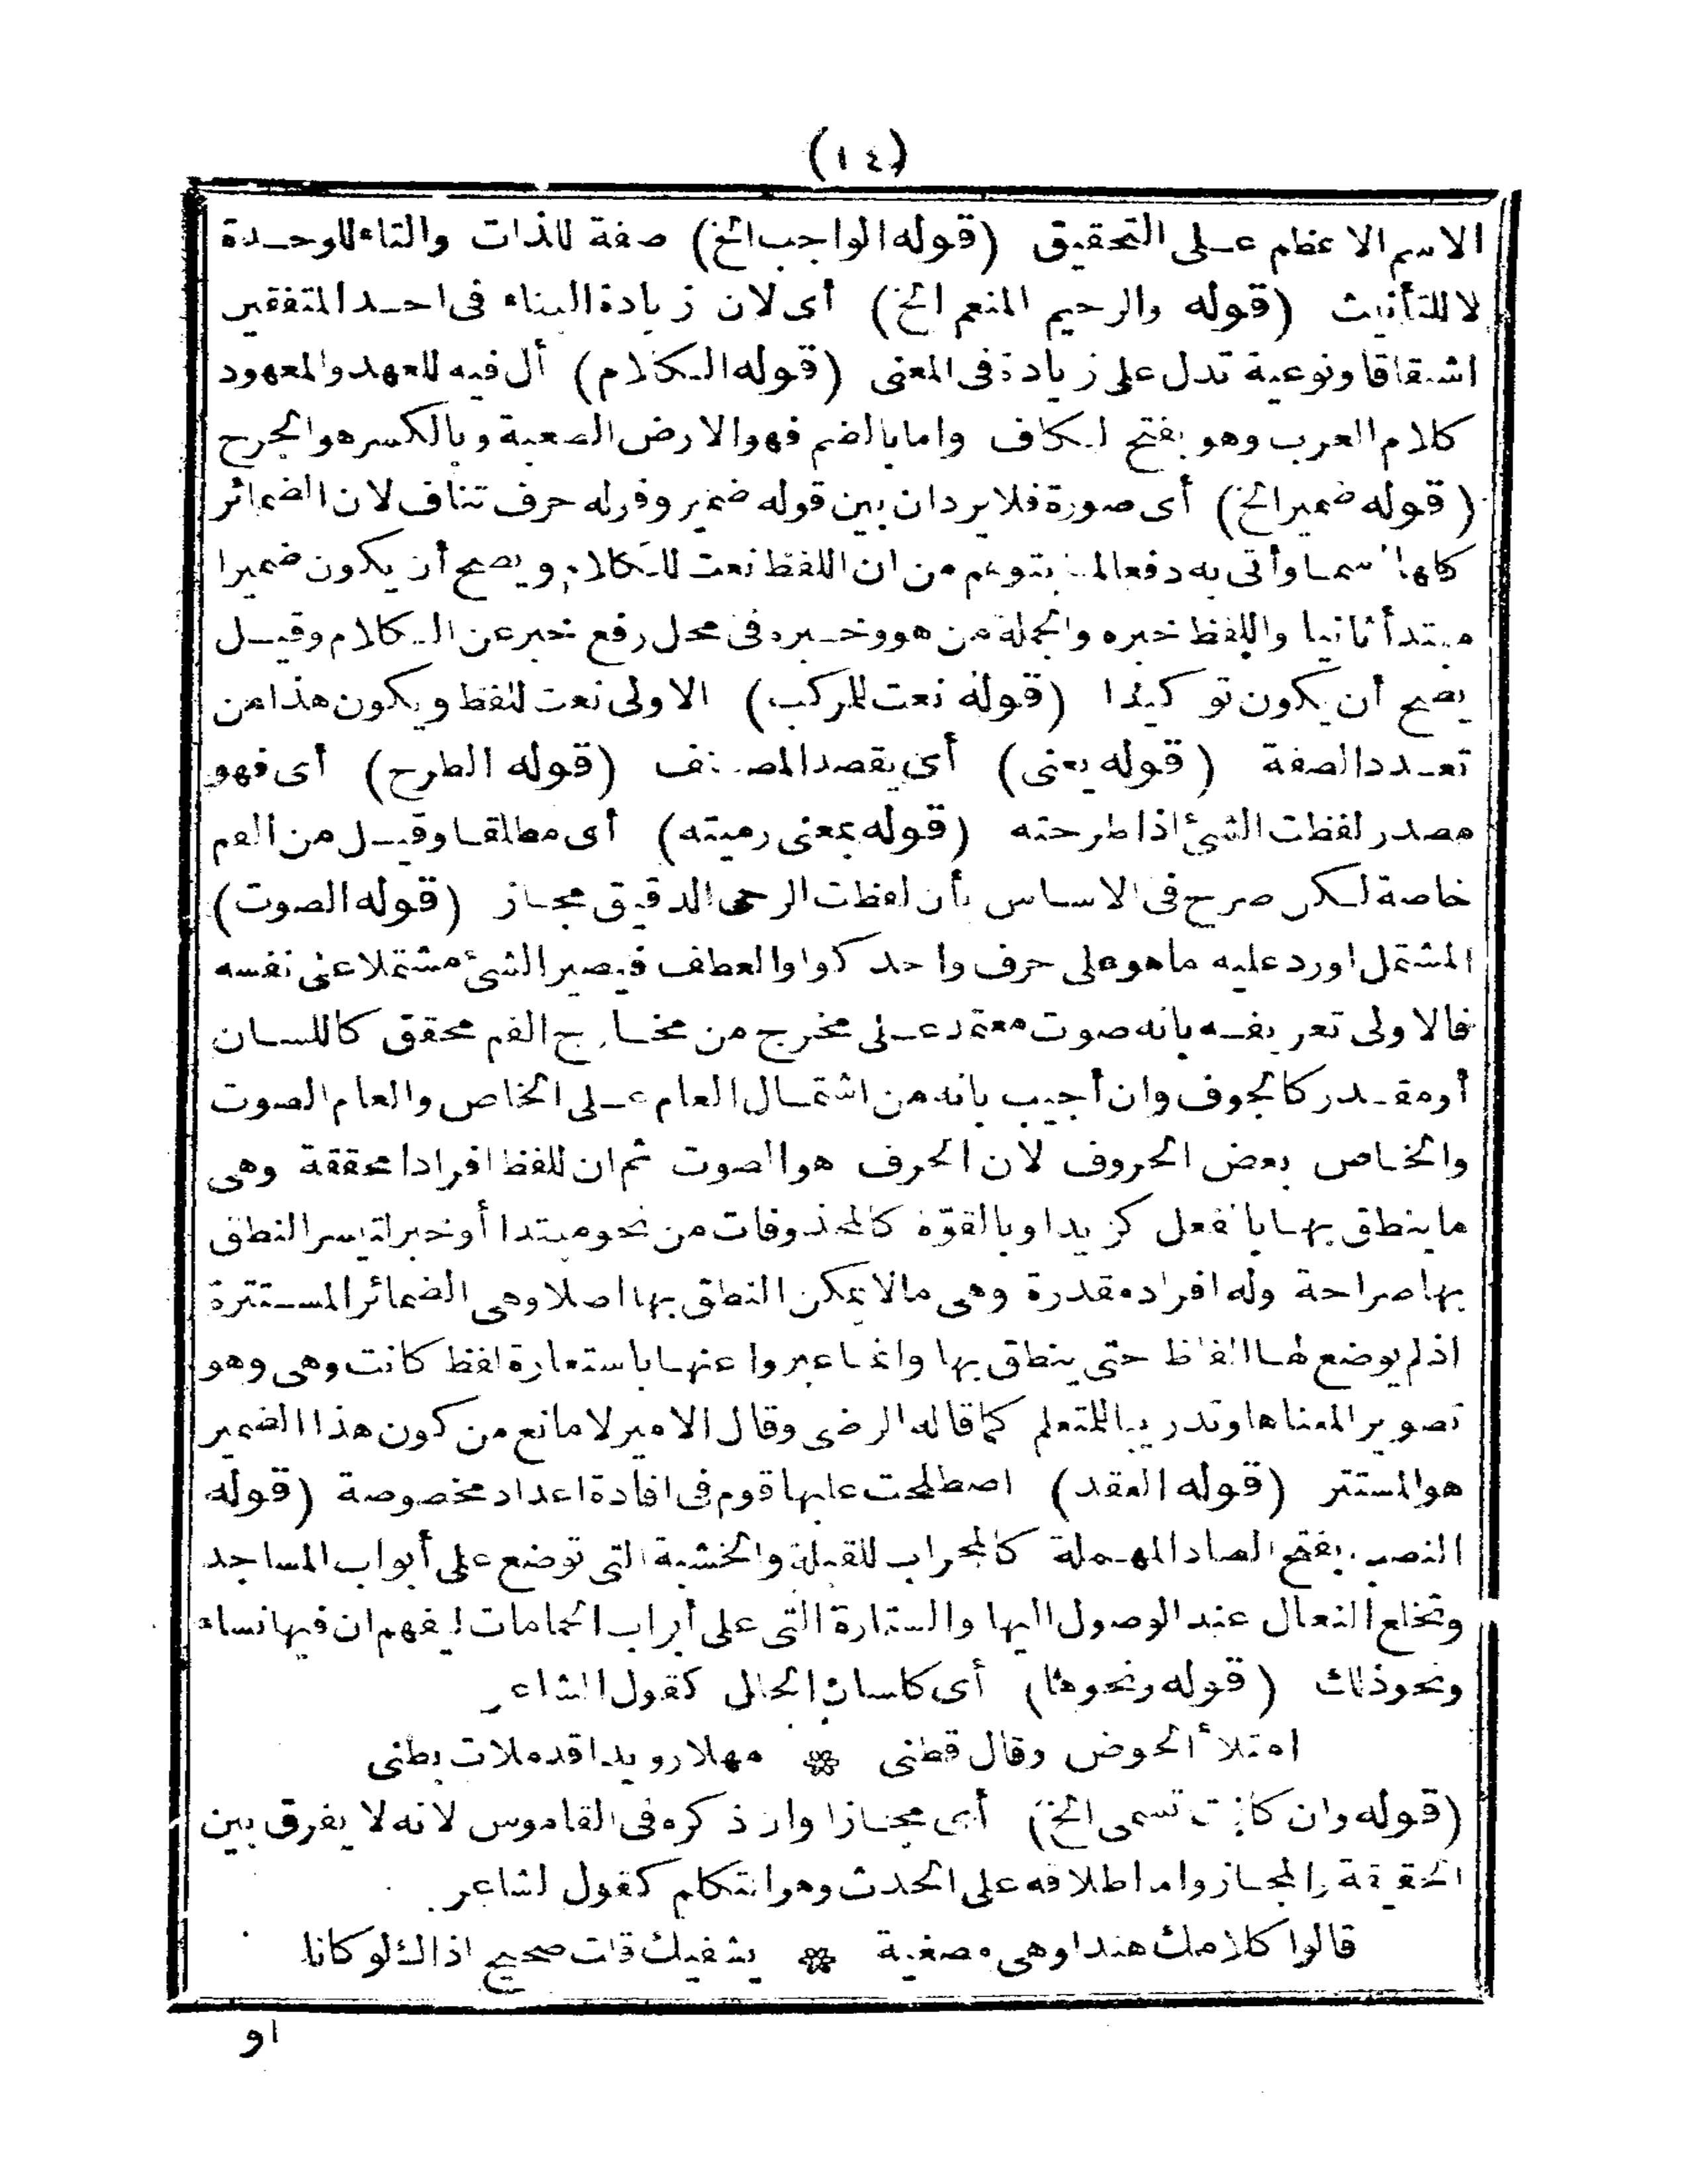 (١٤)
الاسم الاعظم على التحقيق (قوله الواجب الخ) صفة للذات والتاء للوحدة
لا للتأنيث (قوله والرحيم المنعم الخ) أى لان زيادة البناء فى احد المتفقين
اشتقاقا ونوعية تدل على زيادة فى المعنى (قوله الكلام) أل فيه للعهد والمعهود
كلام العرب وهو بفتح الكاف واما بالضم فهو الارض الصعبة وبالكسر هو الجرح
(قوله ضمير الخ) أى صورة فلا يرد ان بين قوله ضمير وقوله حرف تناف لان الضمائر
كلها اسما وأتى به دفعا لما يتوهم من ان اللفظ نعت للكلام ويصح أن يكون ضميرا
مبتدأ ثانيا واللفظ خبره والجملة من هو وخبره فى محل رفع خبر عن الكلام وقيل
يصح أن يكون توكيدا (قوله نعت للمركب) الاولى نعت للفظ ويكون هذا من
تعدد الصفة (قوله يعنى) أى يقصد المصنف (قوله الطرح) أى فهو
مصدر لفظت الشئ اذا طرحته (قوله بمعنى رميته) أى مطلقا وقيل من الفم
خاصة لكن صرح فى الاساس بأن لفظت الرحى الدقيق مجاز (قوله الصوت)
المشتمل اورد عليه ما هو على حرف واحد كواو العطف فيصير الشئ مشتملا على نفسه
فالاولى تعريفه بانه صوت معتمد على مخرج من مخارج الفم محقق كاللسان
أو مقدر كالجوف وان أجيب بانه من اشتمال العام على الخاص والعام الصوت
والخاص بعض الحروف لان الحرف هو الصوت ثم ان للفظ افرادا محققة وهى
ما ينطق بها بالفعل كزيد او بالقوة كالمحذوفات من نحو مبتدا أو خبر لتيسر النطق
بها صراحة وله افراد مقدرة وهى مالا يمكن النطق بها اصلا وهى الضمائر المستترة
اذ لم يوضع لها الفاظ حتى ينطق بها وانما عبروا عنها باستعارة لفظ كانت وهى وهو
تصويرا لمعناها وتدريبا للمتعلم كما قاله الرضى وقال الامير لا مانع من كون هذا الضمير
هو المستتر (قوله العقد) اصطلحت عليها قوم فى افادة اعداد مخصوصة (قوله
النصب بفتح الصاد المهملة كالمحراب للقبلة والخشبة التى توضع على أبواب المساجد
وتخلع النعال عند الوصول اليها والستارة التى على أبواب الحمامات ليفهم ان فيها نساء
ونحو ذلك (قوله ونحوها) أى كلسان الحال كقول الشاعر
امتلأ الحوض وقال قطنى * مهلا رويدا قد ملات بطنى
(قوله وان كانت تسمى الخ) أى مجازا وان ذكره فى القاموس لانه لا يفرق بين
الحقيقة والمجاز واما اطلاقه على الحدث وهو التكلم كقول الشاعر
قالوا كلامك هندا وهى مصغية * يشفيك قلت صحيح اذاك لو كانا
او